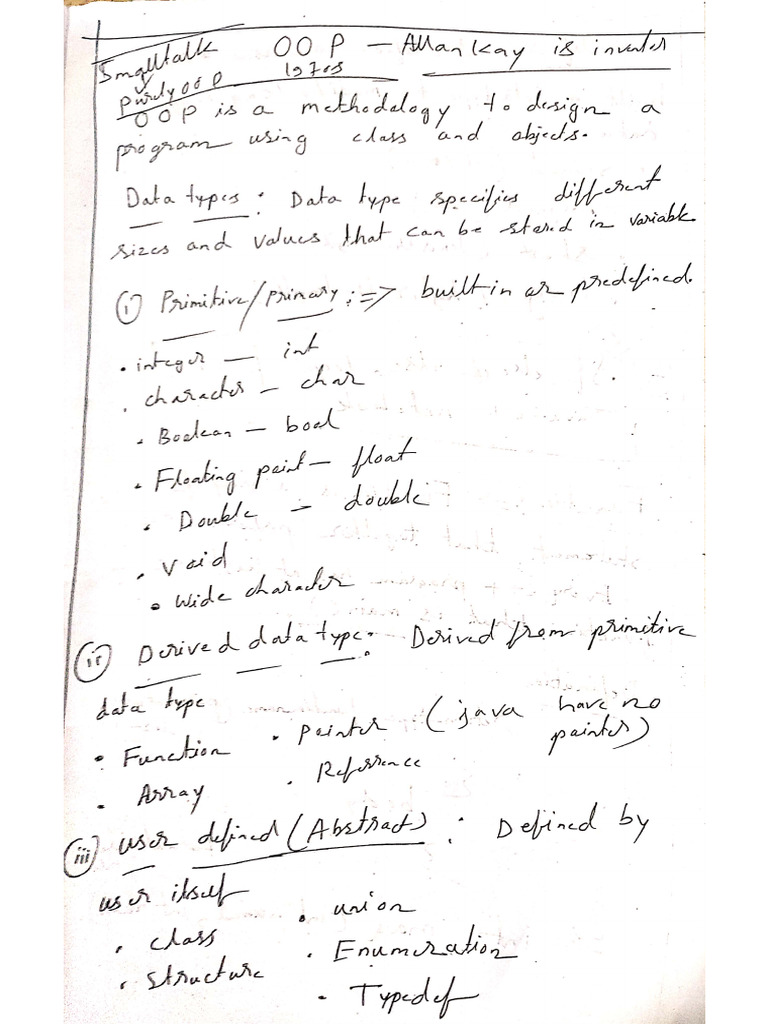 Smalltalk OOP - Allan kay is inventer
purely OOP 1970s
OOP is a methodology to design a
program using class and objects.
Data types : Data type specifies different
sizes and values that can be stored in variable
(i) Primitive/primary : => built in or predefined.
• integer — int
• character — char
• Boolean — bool
• Floating point — float
• Double — double
• Void
• Wide character
(ii) Derived data type : Derived from primitive
data type
• Function • Pointer (java have no
pointer)
• Array • Reference
(iii) user defined (Abstract) : Defined by
user itself
• class • union
• structure • Enumeration
• Typedef